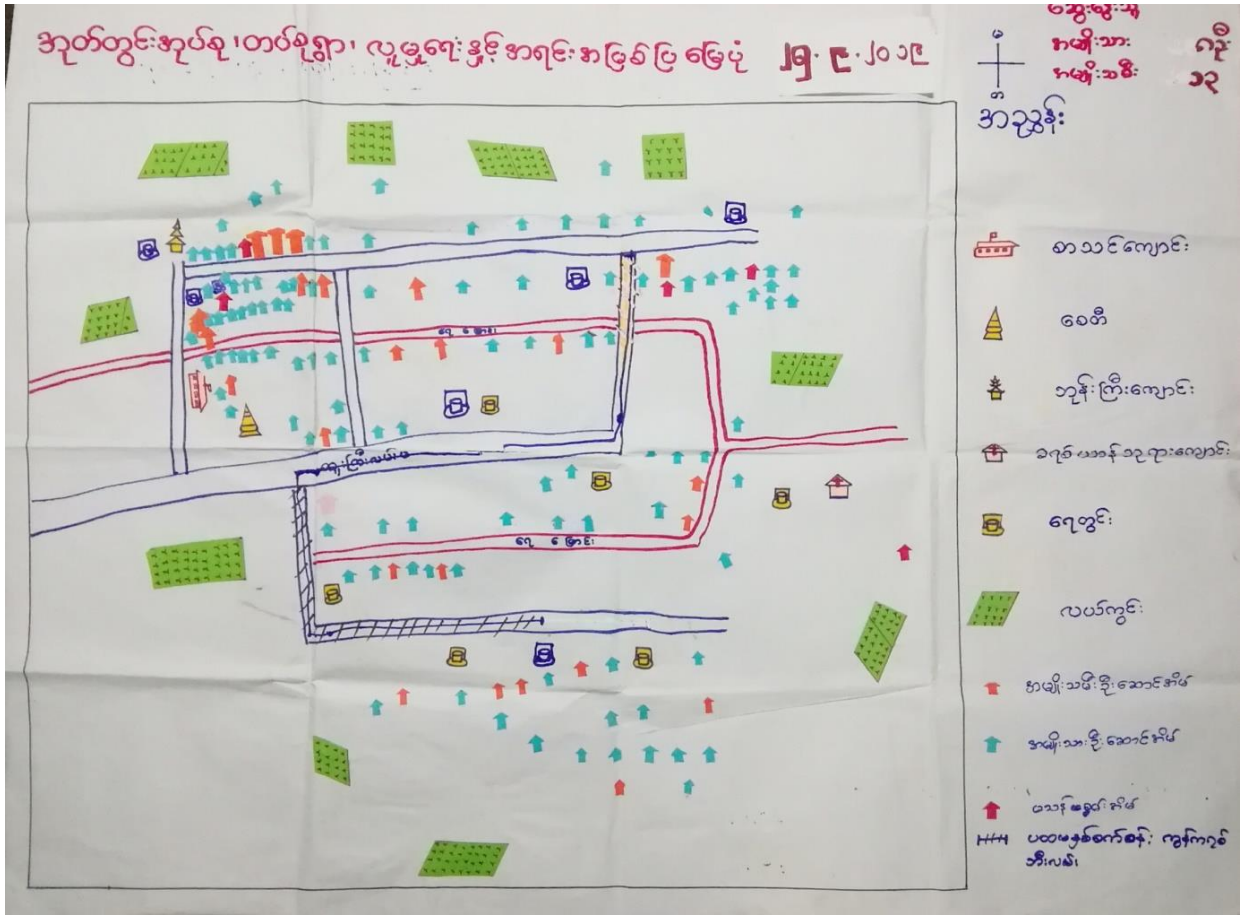 အုတ်တွင်းအုပ်စု၊တပ်စုရွာ၊ လူမှုရေးနှင့်အရင်းအမြစ်ပြမြေပုံ ၂၅.၉.၂၀၁၉
ဆွေးနွေးသူ
အမျိုးသား ၈ဦး
အမျိုးသမီး ၁၃
အညွှန်း
စာသင်ကျောင်း
စေတီ
ဘုန်းကြီးကျောင်း
ခရစ်ယာန်ဘုရားကျောင်း
ရေတွင်း
လယ်ကွင်း
အမျိုးသမီးဦးဆောင်အိမ်
အမျိုးသားဦးဆောင်အိမ်
မသန်စွမ်းအိမ်
ပထမနှစ်စက်စန်; ကွန်ကရစ်
ရေမြောင်း
ရေမြောင်း